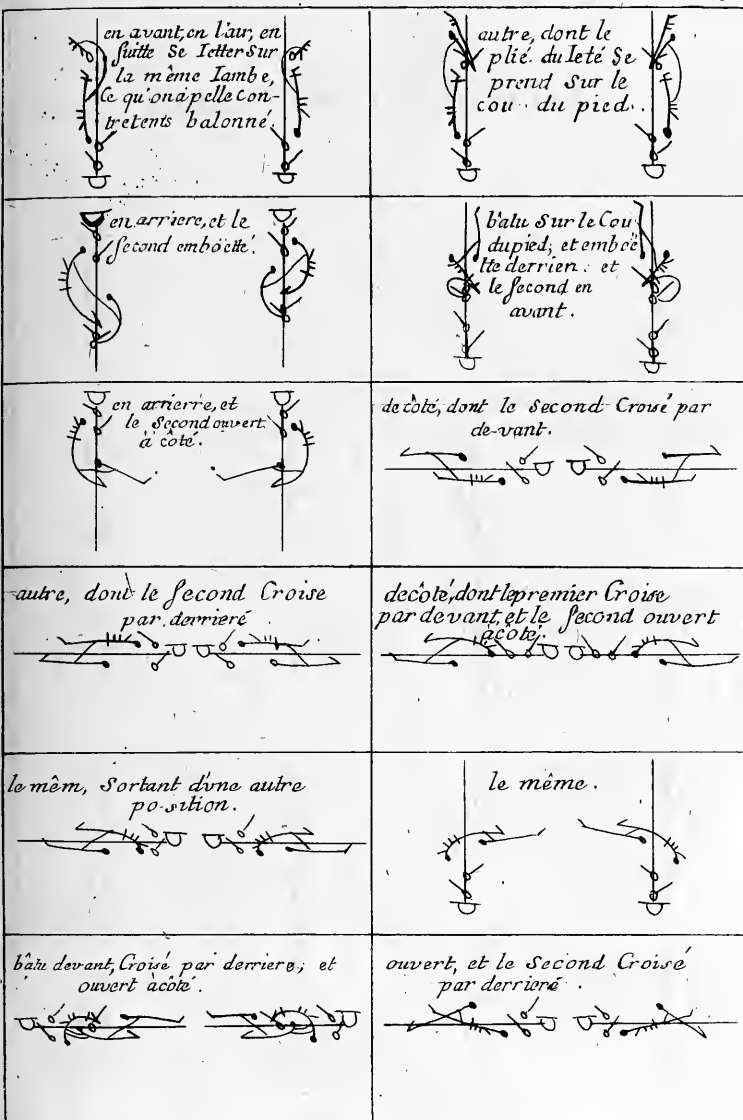 en avant, en l'air, en
suitte Se Ietter Sur
la même Iambe,
Ce qu'on apelle con-
tretents balonné.
autre, dont le
plié du Ieté Se
prend Sur le
cou du pied.
en arriere, et le
second emböetté.
bâtu Sur le Cou
du pied; et emböe
tte derrien. et
le second en
avant.
en arrierre, et
le Second ouvert
à côté.
de côté, dont le Second Croisé par
de-vant.
autre, dont le second Croise
par derrieré
de côté, dont le premier Croise
par devant, et le second ouvert
à côté.
le mêm, Sortant d'vne autre
po-sition.
le même.
bâtu devant, Croisé par derriere; et
ouvert à côté.
ouvert, et le Second Croisé
par derrieré.